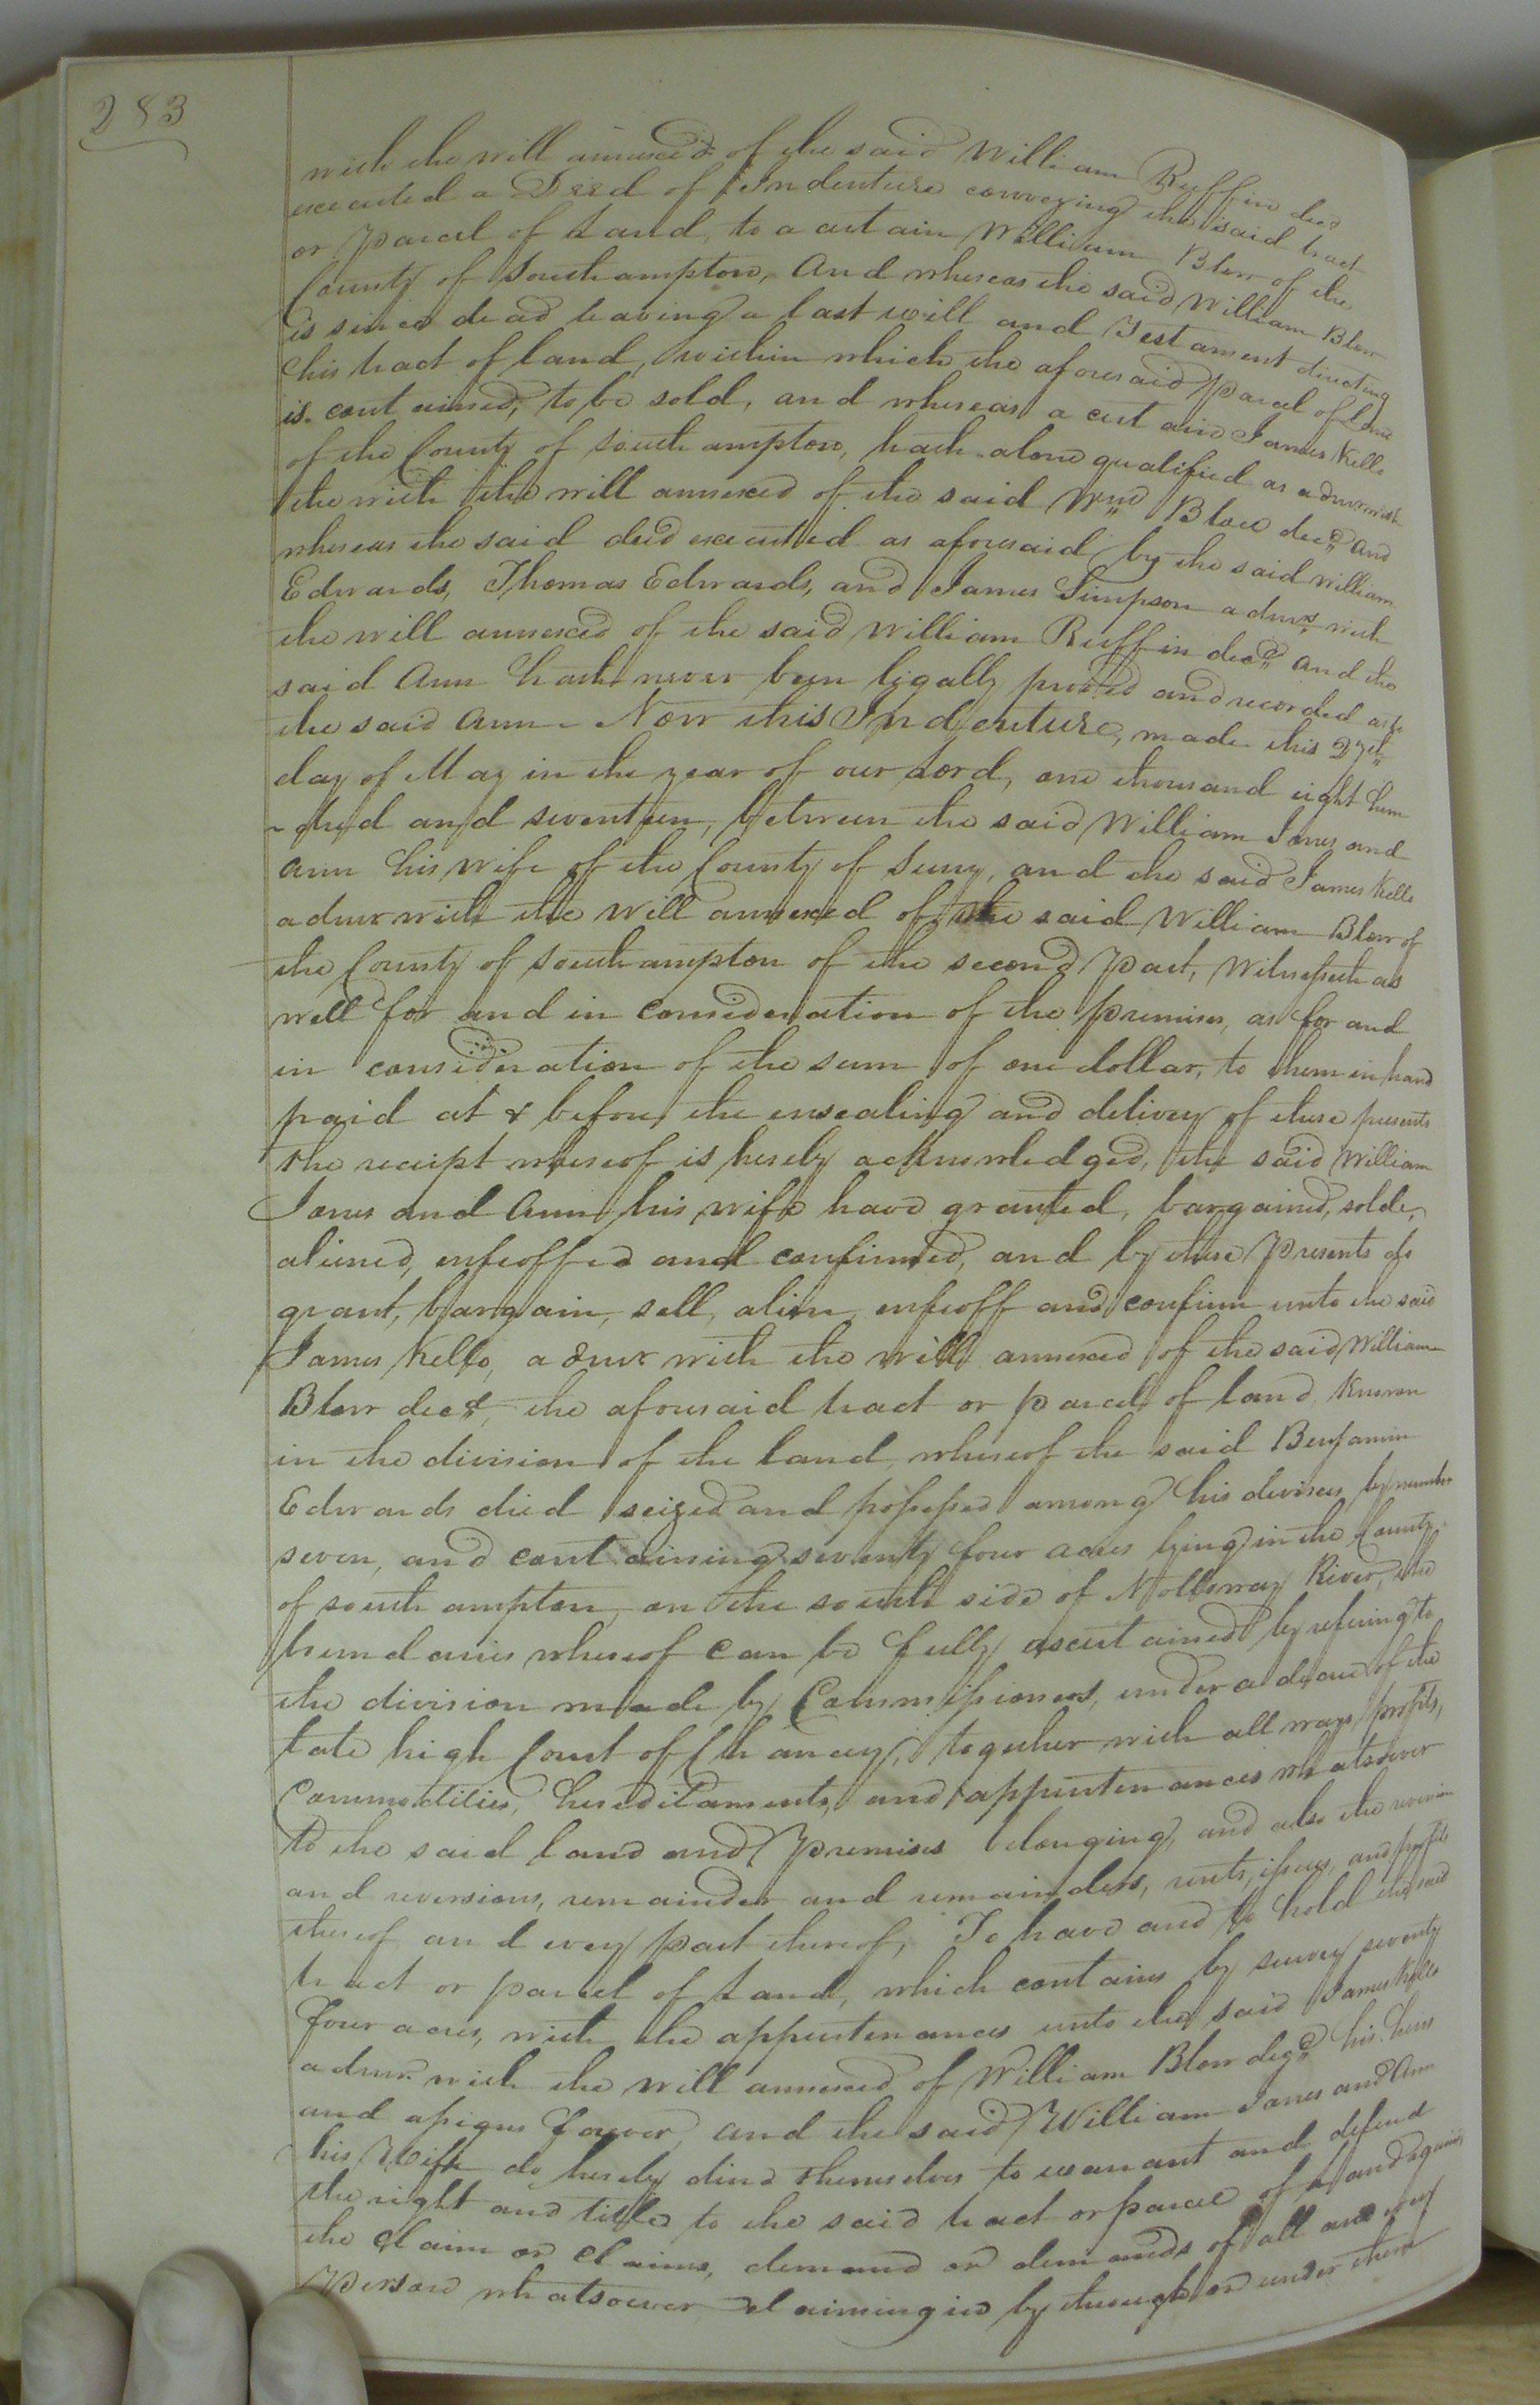 283
with the will annexed of the said William Ruffin decd
executed a Deed of Indenture conveying the said tract
or parcel of Land, to a certain William Blow of the
County of Southampton, And whereas the said William Blow
is since dead leaving a last will and Testament directing
his tract of land, within which the aforesaid parcel of Land
is contained, to be sold, and whereas a certain James Kello
of the County of Southampton, hath alone qualified as
the with the will annexed of the said Wm Blow decd and
whereas the said deed executed as aforesaid by the said William
Edwards, Thomas Edwards, and James Simpson admrs with
the will annexed of the said William Ruffin decd and the
said Ann hath never been legally proved and recorded as to
the said Ann - Now this Indenture, made this 27th
day of May in the year of our Lord, one thousand eight hun
-dred and seventeen, between the said William Jones and
Ann his wife of the County of Surry, and the said James Kello
admr with the will annexed of the said William Blow of
the County of Southampton of the second part, Witnesseth as
well for and in consideration of the premises, as for and
in consideration of the sum of one dollar, to them in hand
paid at & before the ensealing and delivery of these presents
the receipt whereof is hereby acknowledged, the said William
Jones and Ann his wife have granted, bargained, solde,
aliened, enfeoffed and confirmed, and by these Presents do
grant, bargain, sell, alien, enfeoff and confirm unto the said
James Kello, admr with the will annexed of the said William
Blow decd, the aforesaid tract or parcel of land, known
in the division of the land, whereof the said Benjamin
Edwards died seized and possessed among his devisees by number
seven, and containing seventy four acres lying in the County
of Southampton, on the south side of Nottoway River, the
boundaries whereof can be fully ascertained by refering to
the division made by Commissioners, under a decree of the
late high Court of Chancery, together with all ways, profits,
Commodities, hereditaments, and appurtenances whatsoever
to the said land and Premises belonging, and also the reversion
and reversions, remainder and remainders, rents, issues, and profits
thereof and every part thereof, To have and to hold the said
tract or parcel of Land, which contains by survey seventy
four acres, with the appurtenances unto the said James Kello
admr. with the will annexed of William Blow decd his heirs
and assigns forever, and the said William Jones and Ann
his Wife do hereby bind themselves to warrant and defend
the right and title to the said tract or parcel of Land against
the claim or claims, demand or demands of all and every
Person whatsoever claiming in by through or under them